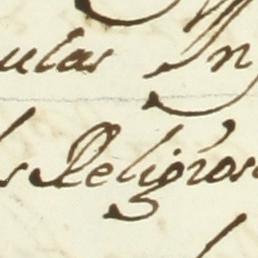 ulas In
s Religios